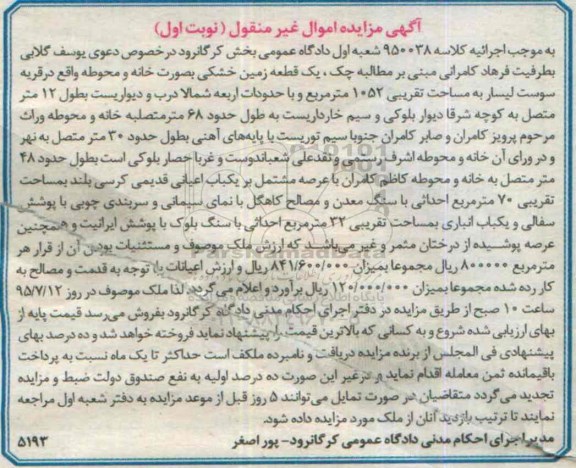 آگهی مزایده اموال غیر منقول (نوبت اول)
به موجب اجرائیه کلاسه ۹۵۰۰۳۸ شعبه اول دادگاه عمومی بخش کرگانرود درخصوص دعوی یوسف گلابی
بطرفیت فرهاد کامرانی مبنی بر مطالبه چک ، یک قطعه زمین خشکی بصورت خانه و محوطه واقع درقریه
سوست لیسار به مساحت تقریبی ۱۰۵۲ مترمربع و با حدودات اربعه شمالا درب و دیواریست بطول ۱۲ متر
متصل به کوچه شرقا دیوار بلوکی و سیم خارداریست به طول حدود ۶۸ مترمتصلبه خانه و محوطه وراث
مرحوم پرویز کامران و صابر کامران جنوبا سیم توریست با پایه‌های آهنی بطول حدود ۳۰ متر متصل به نهر
و در ورای آن خانه و محوطه اشرف رستمی و نقدعلی شعباندوست و غربا حصار بلوکی است بطول حدود ۴۸
متر متصل به خانه و محوطه کاظم کامران با عرصه مشتمل بر یکباب اعیانی قدیمی کرسی بلند بمساحت
تقریبی ۷۰ مترمربع احداثی با سنگ معدن و مصالح کاهگل با نمای سیمانی و سربندی چوبی با پوشش
سفالی و یکباب انباری بمساحت تقریبی ۳۲ مترمربع احداثی با سنگ بلوک با پوشش ایرانیت و همچنین
عرصه پوشیده از درختان مثمر و غیر می‌باشد که ارزش ملک موصوف و مستثنیات بودن آن از قرار هر
مترمربع ۸۰۰۰۰۰ ریال مجموعا بمیزان ۸۴۱/۶۰۰/۰۰۰ ریال و ارزش اعیانات با توجه به قدمت و مصالح به
کار رده شده مجموعا بمیزان ۱۲۰/۰۰۰/۰۰۰ ریال برآورد و اعلام می گردد لذا ملک موصوف در روز ۹۵/۷/۱۲
ساعت ۱۰ صبح از طریق مزایده در دفتر اجرای احکام مدنی دادگاه کرگانرود بفروش می‌رسد قیمت پایه از
بهای ارزیابی شده شروع و به کسانی که بالاترین قیمت را پیشنهاد نماید فروخته خواهد شد و ده درصد بهای
پیشنهادی فی المجلس از برنده مزایده دریافت و نامبرده ملکف است حداکثر تا یک ماه نسبت به پرداخت
باقیمانده ثمن معامله اقدام نماید و درغیر این صورت ده درصد اولیه به نفع صندوق دولت ضبط و مزایده
تجدید می‌گردد متقاضیان در صورت تمایل می‌توانند ۵ روز قبل از موعد مزایده به دفتر شعبه اول مراجعه
نمایند تا ترتیب بازدید آنان از ملک مورد مزایده داده شود.
مدیر اجرای احکام مدنی دادگاه عمومی کرگانرود- پور اصغر ۵۱۹۳